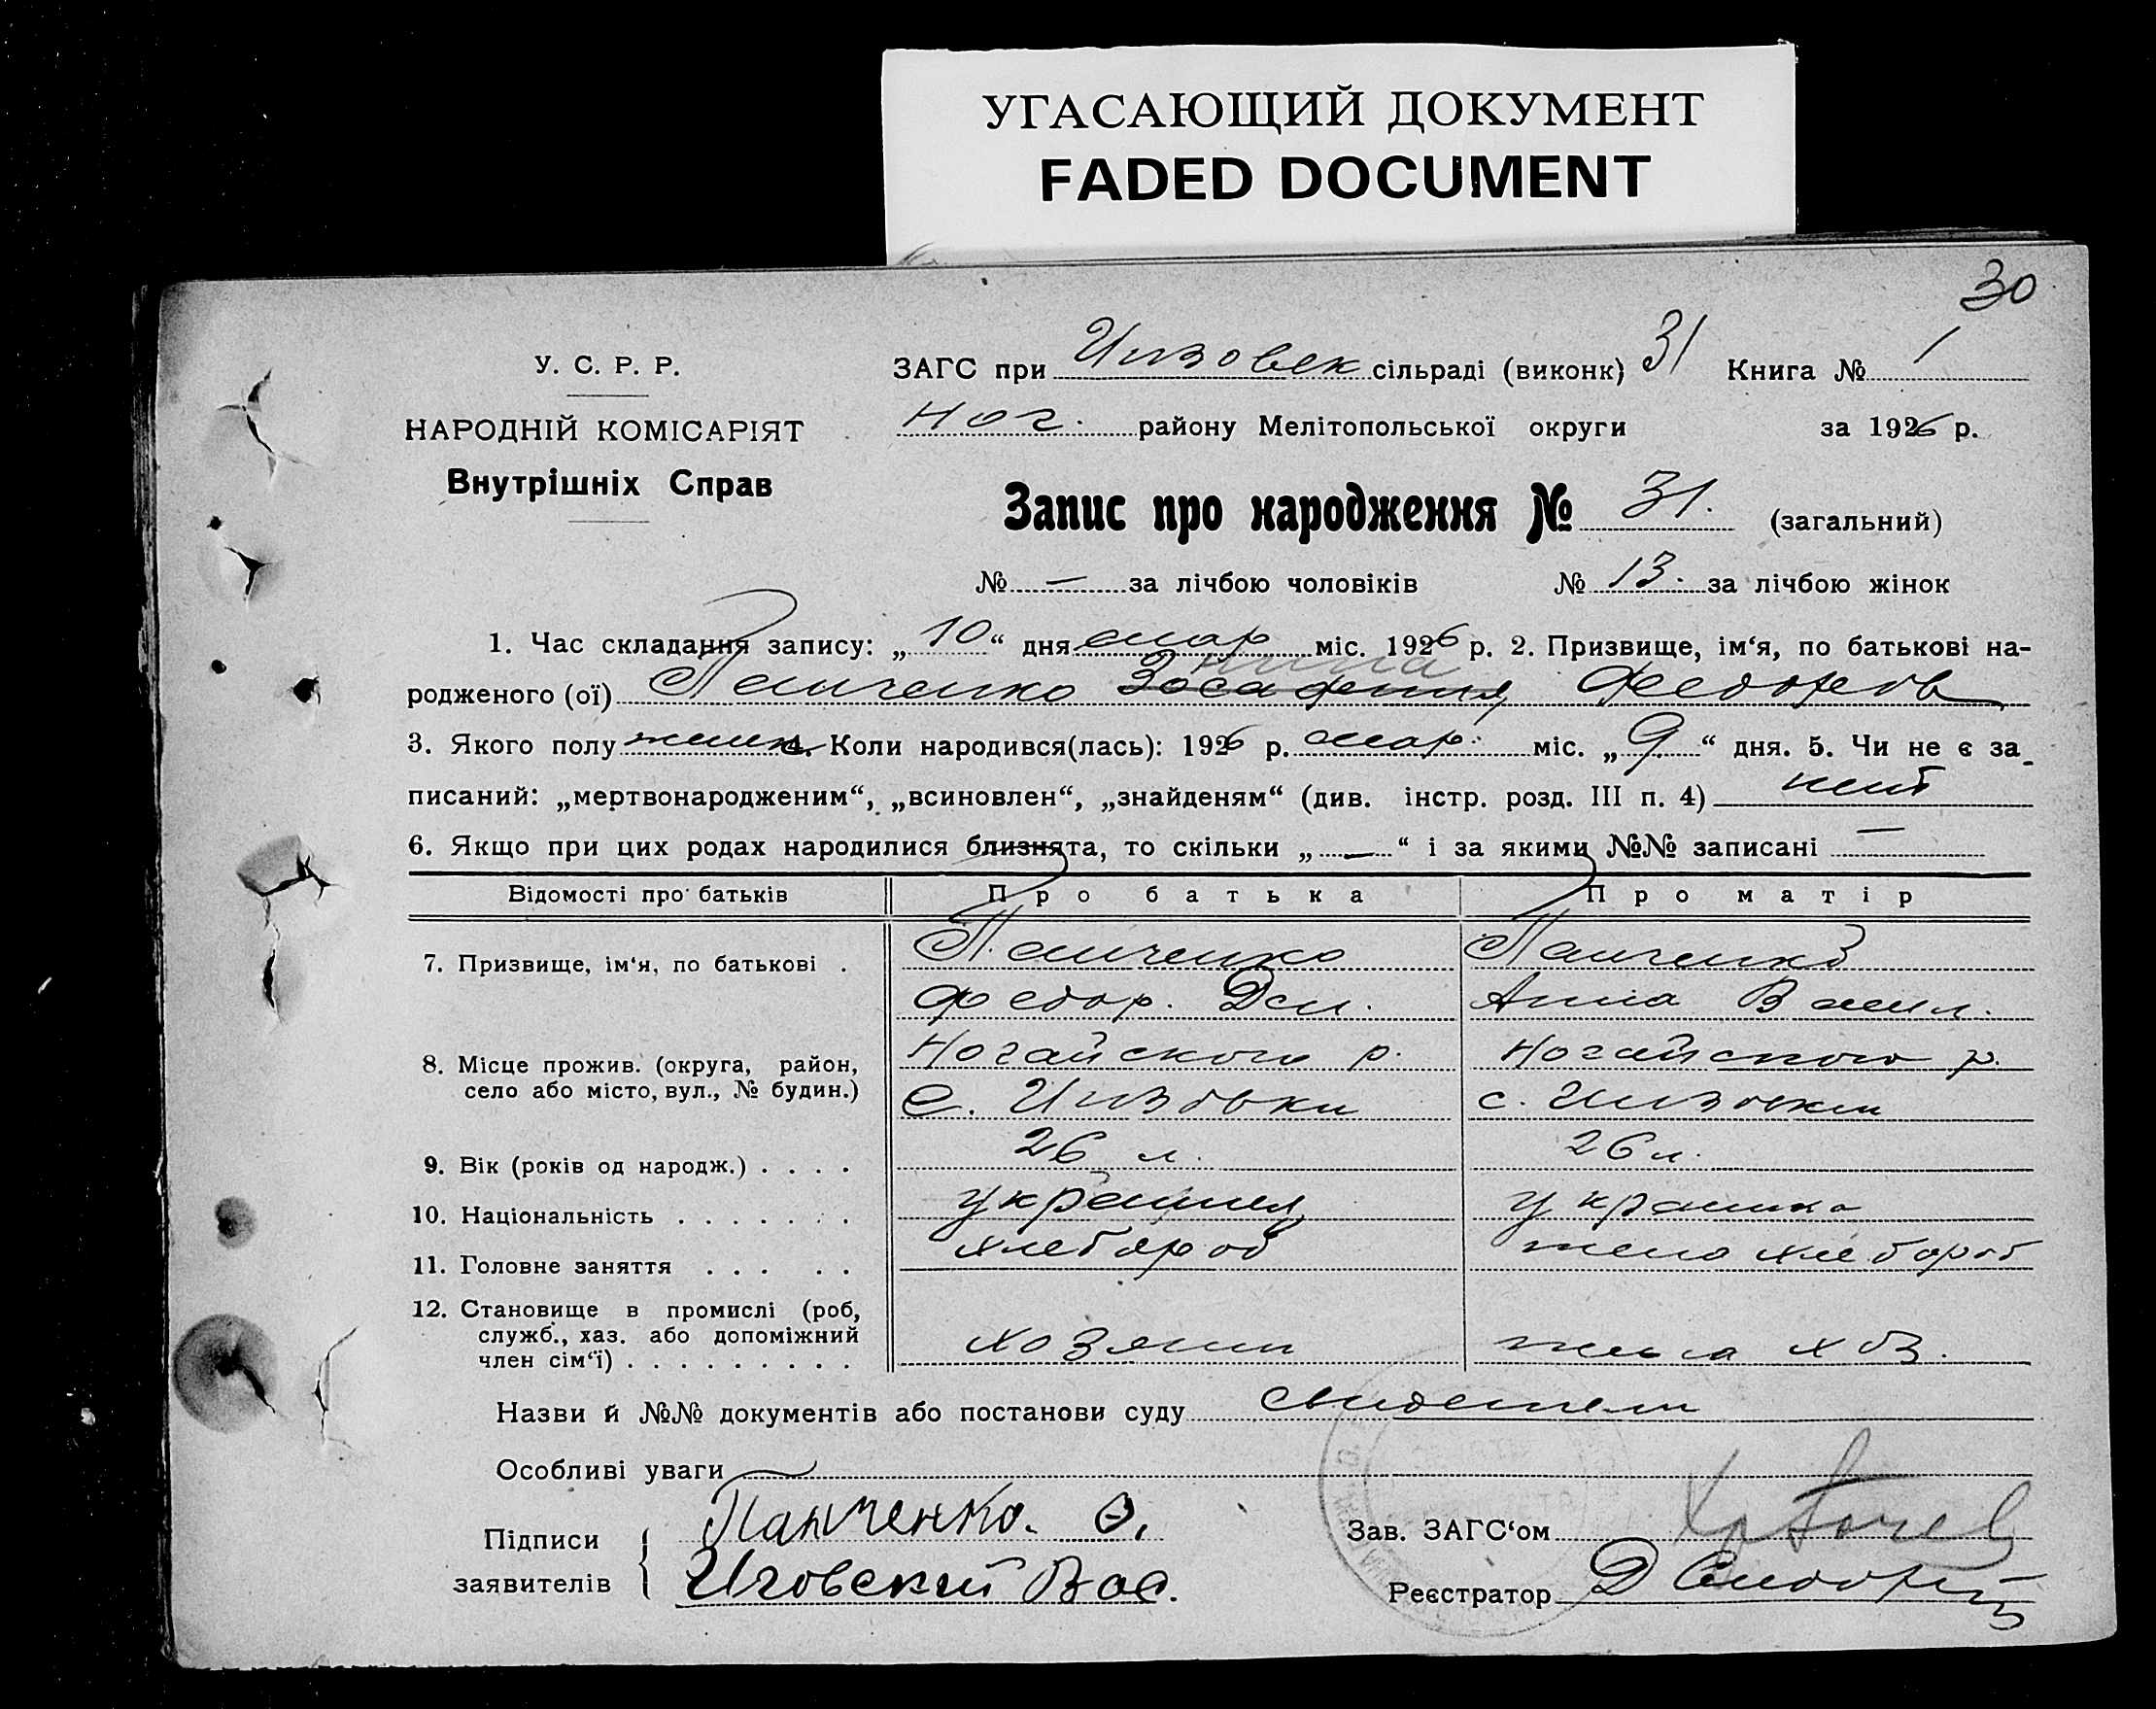 УГАСАЮЩИЙ ДОКУМЕНТ
FADED DOCUMENT
30
У. С. Р. Р.
НАРОДНІЙ КОМІСАРІЯТ
Внутрішніх Справ
ЗАГС при Инзовск сільраді (виконк) 31 Книга № 1
Ног. району Мелітопольської округи за 1926 р.
Запис про народження № 31. (загальний)
№ — за лічбою чоловіків № 13. за лічбою жінок
1. Час складання запису: „10“ дня мар міс. 1926 р. 2. Призвище, ім‘я, по батькові на-
Нина
родженого (ої) Панченко Федоров
3. Якого полу женск 4. Коли народився(лась): 1926 р. мар. міс. „9“ дня. 5. Чи не є за-
писаний: „мертвонародженим“, „всиновлен“, „знайденям“ (див. інстр. розд. III п. 4) нет
6. Якщо при цих родах народилися близнята, то скільки „—“ і за якими №№ записані —
Відомості про батьків Про батька Про матір
7. Призвище, ім‘я, по батькові . Панченко Панченко
Федор. Дем. Анна Васил.
8. Місце прожив. (округа, район, Ногайского р. Ногайского р.
село або місто, вул., № будин.) с. Инзовки с. Инзовки
9. Вік (років од народж.) . . . . 26 л. 26 л.
10. Національність . . . . . . . украинец украинка
11. Головне заняття . . . . . хлебороб жена хлебороб
12. Становище в промислі (роб,
служб., хаз. або допоміжний
член сім‘ї) . . . . . . . . . хозяин жена хоз.
Назви й №№ документів або постанови суду свидетели
Особливі уваги
Підписи Панченко. Ѳ. Зав. ЗАГС‘ом
заявителів Иговский Вас. Реєстратор Д